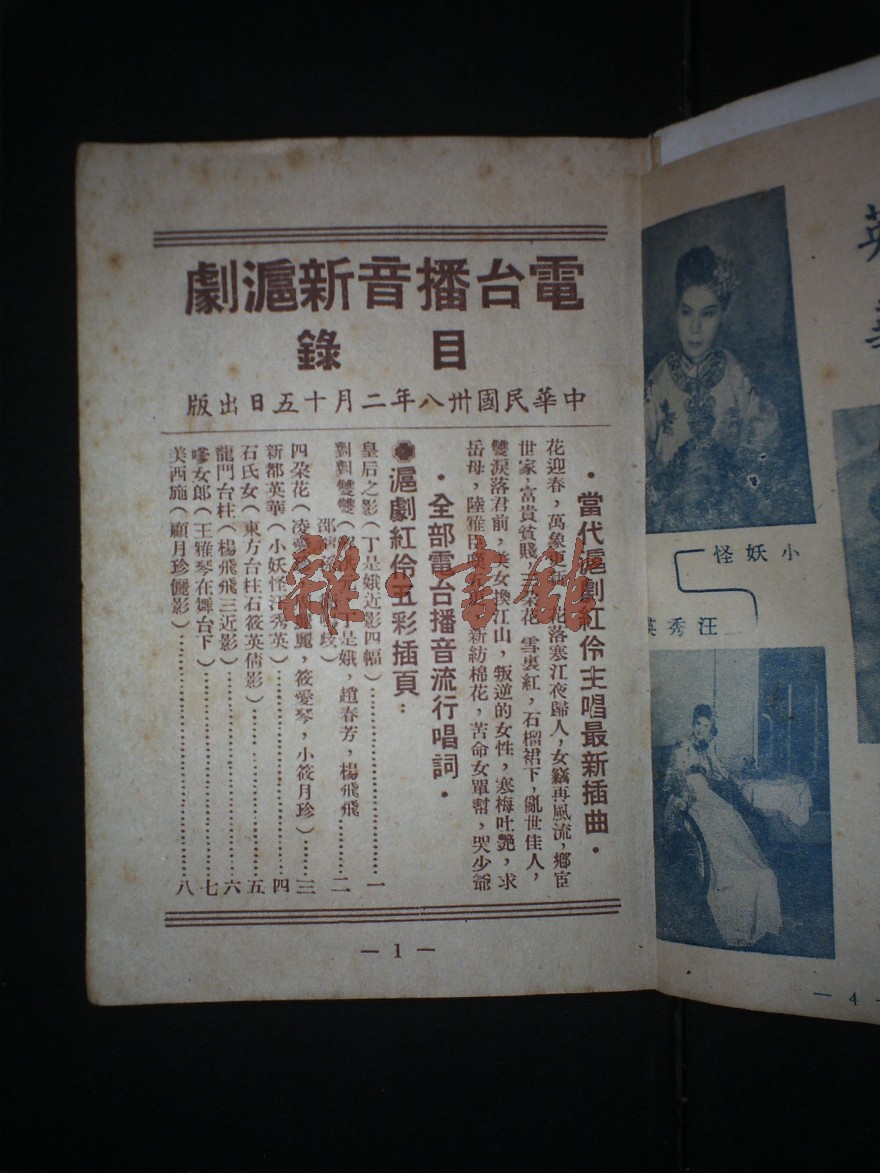 電台播音新滬劇
目錄
中華民國卅八年二月十五日出版
·當代滬劇紅伶主唱最新插曲·
花迎春，萬象更新，花落寒江夜歸人，女竊再風流，鄉宦
世家，富貴貧賤，三朵花，雪裏紅，石榴裙下，亂世佳人，
雙淚落君前，美女換江山，叛逆的女性，寒梅吐艷，求
岳母，陸雅臣嘆五更，新紡棉花，苦命女單幫，哭少爺
·全部電台播音流行唱詞·
滬劇紅伶五彩插頁：
皇后之影（丁是娥近影四幅）……一
對對雙雙（解洪元，丁是娥，趙春芳，楊飛飛
邵濱孫……二
四朵花（凌愛珍，筱愛琴，小筱月珍）……三
新都英華（小妖怪汪秀英）……四
石氏女（東方台柱石筱英倩影）……五
龍門台柱（楊飛飛三近影）……六
嗲女郎（王雅琴在舞台下）……七
美西施（顧月珍儷影）……八
— 1 —
英華
小妖怪
汪秀英
— 4 —
雜·書館